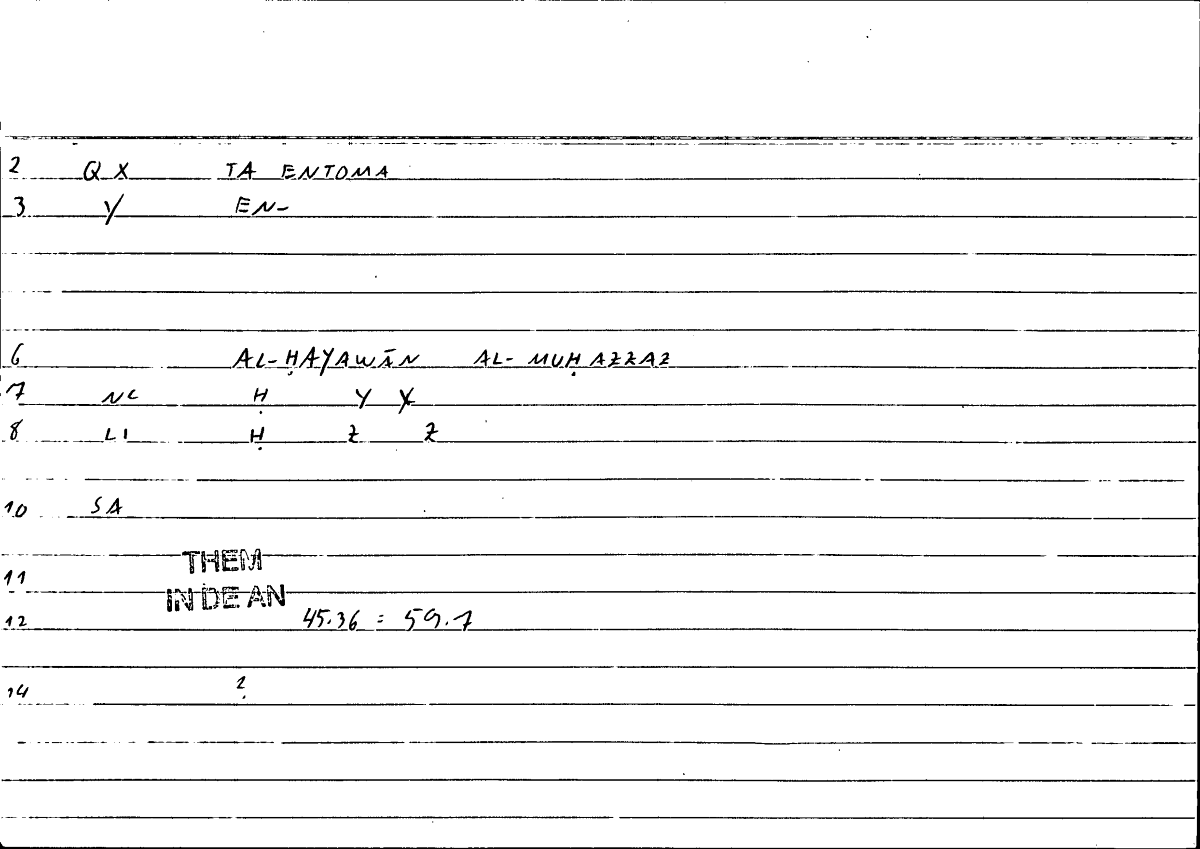 2 Q X TA ENTOMA
3 Y EN-
6 AL-ḤAYAWĀN AL-MUḤAZZAZ
7 NC Ḥ Y X
8 LI Ḥ Z Z
10 SA
THEM
11
IN DE AN
12 45.36 = 59.7
14 ?